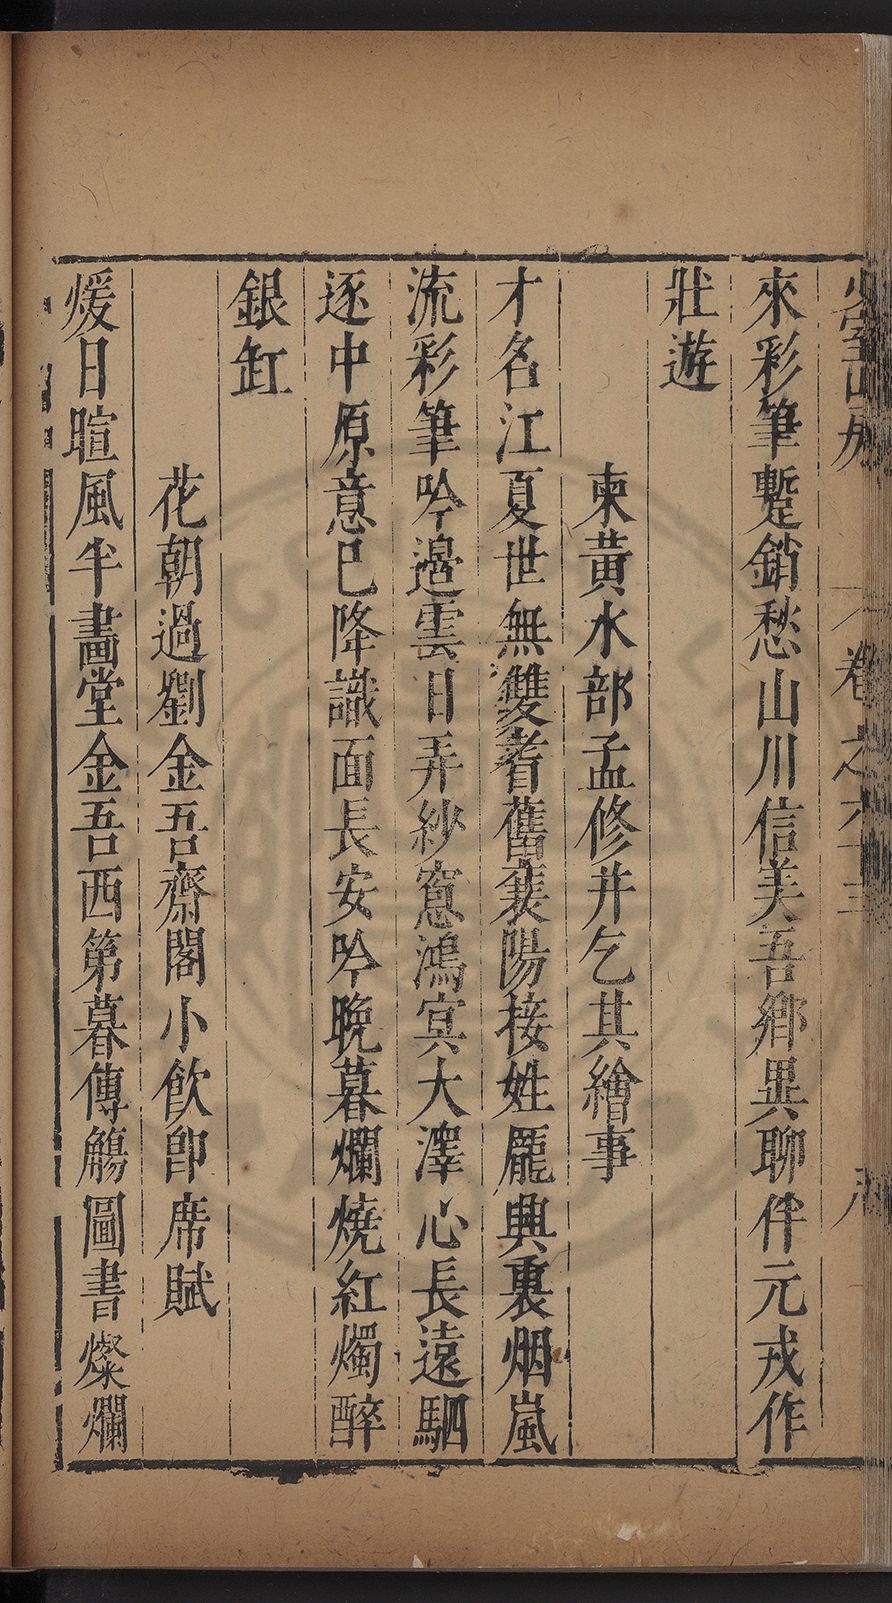 少室山房 卷之六十三
來彩筆蹔銷愁山川信美吾鄉異聊伴元戎作
壯遊
柬黃水部孟修并乞其繪事
才名江夏世無雙耆舊襄陽接姓龐典裏烟嵐
流彩筆吟邉雲日弄紗窻鴻㝠大澤心長遠駟
逐中原意已降識面長安吟晚暮爛燒紅燭醉
銀缸
花朝過劉金吾齋閣小飲卽席賦
煖日暄風半畫堂金吾西第暮傳觴圖書燦爛